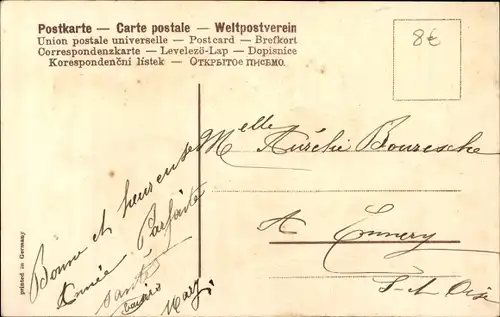 Postkarte — Carte postale — Weltpostverein
Union postale universelle — Postcard — Brefkort
Correspondenzkarte — Levelező-Lap — Dopisnice
Korespondenční lístek — Открытое письмо.
8€
Melle Aurélie Bouresche
A Ennery
S-et-Oise
Bonne et heureuse
Année Parfaite
santé
printed in Germany